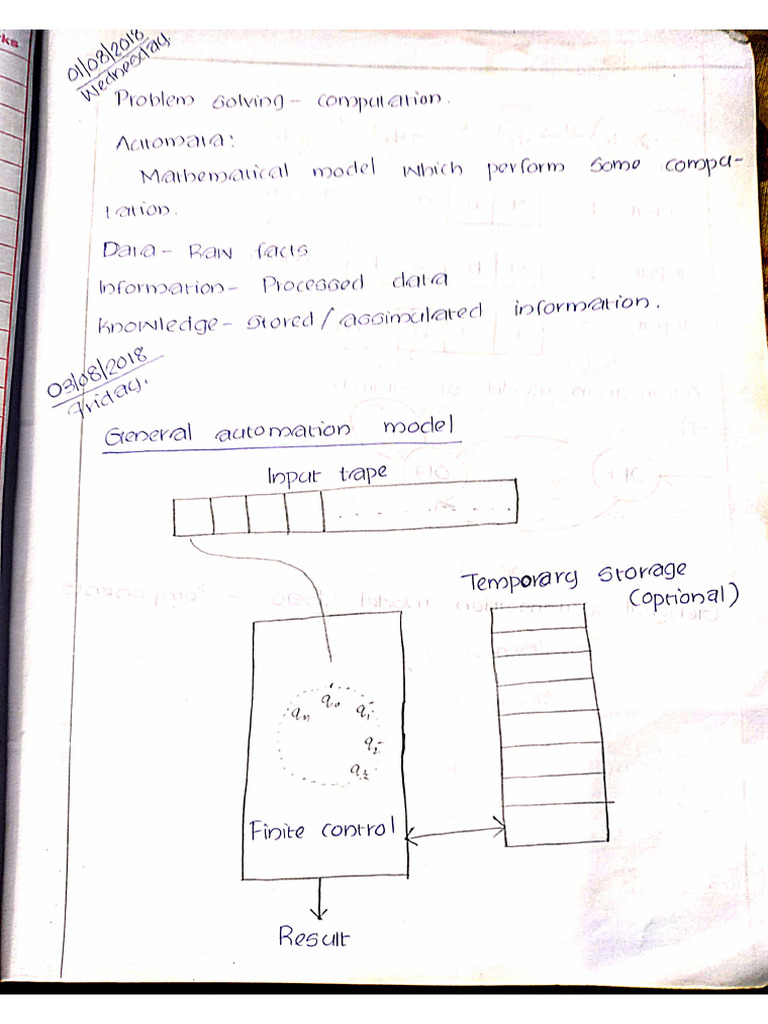 01/08/2018
Wednesday.
Problem solving - computation.
Automata:
Mathematical model which perform some compu-
tation.
Data - Raw facts
Information - Processed data
Knowledge - Stored / assimulated information.
03/08/2018
Friday.
General automation model
Input trape
Temporary Storage
(optional)
qn q0 q1
q2
q3
Finite control
Result